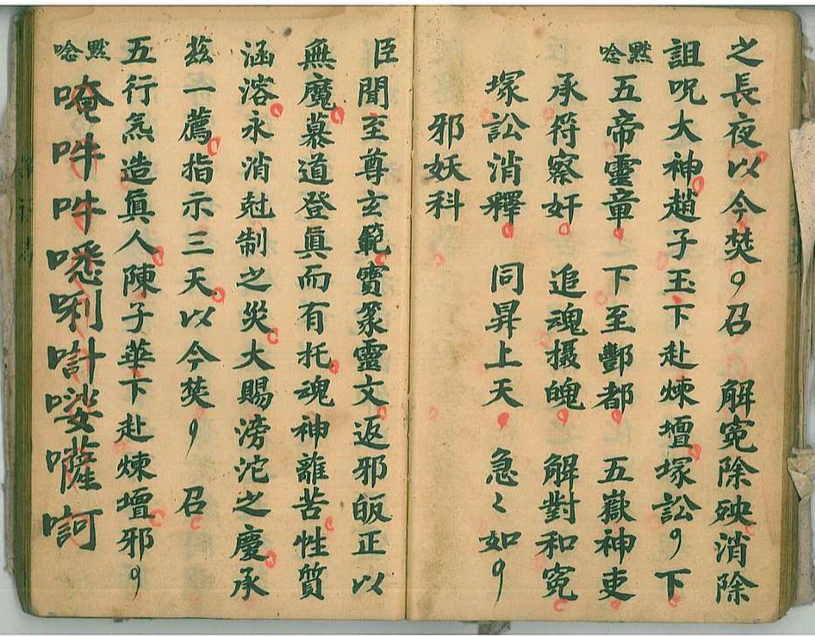 之長夜以今焚召 解寃除殃消除
詛呪大神趙子玉下赴煉壇塚訟下
默唸五帝靈童 下至酆都 五嶽神吏
承符察奸 追魂摄魄 解對和寃
塚訟消釋 同昇上天 急々如
邪妖科
臣聞至尊玄範寶篆靈文返邪皈正以
無魔慕道登眞而有托魂神離苦性質
涵溶永消尅制之災大賜滂沱之慶承
茲一薦指示三天以今焚 召
五行炁造眞人陳子華下赴煉壇邪
默唸唵吽吽㗭唎㖶娑薩訶